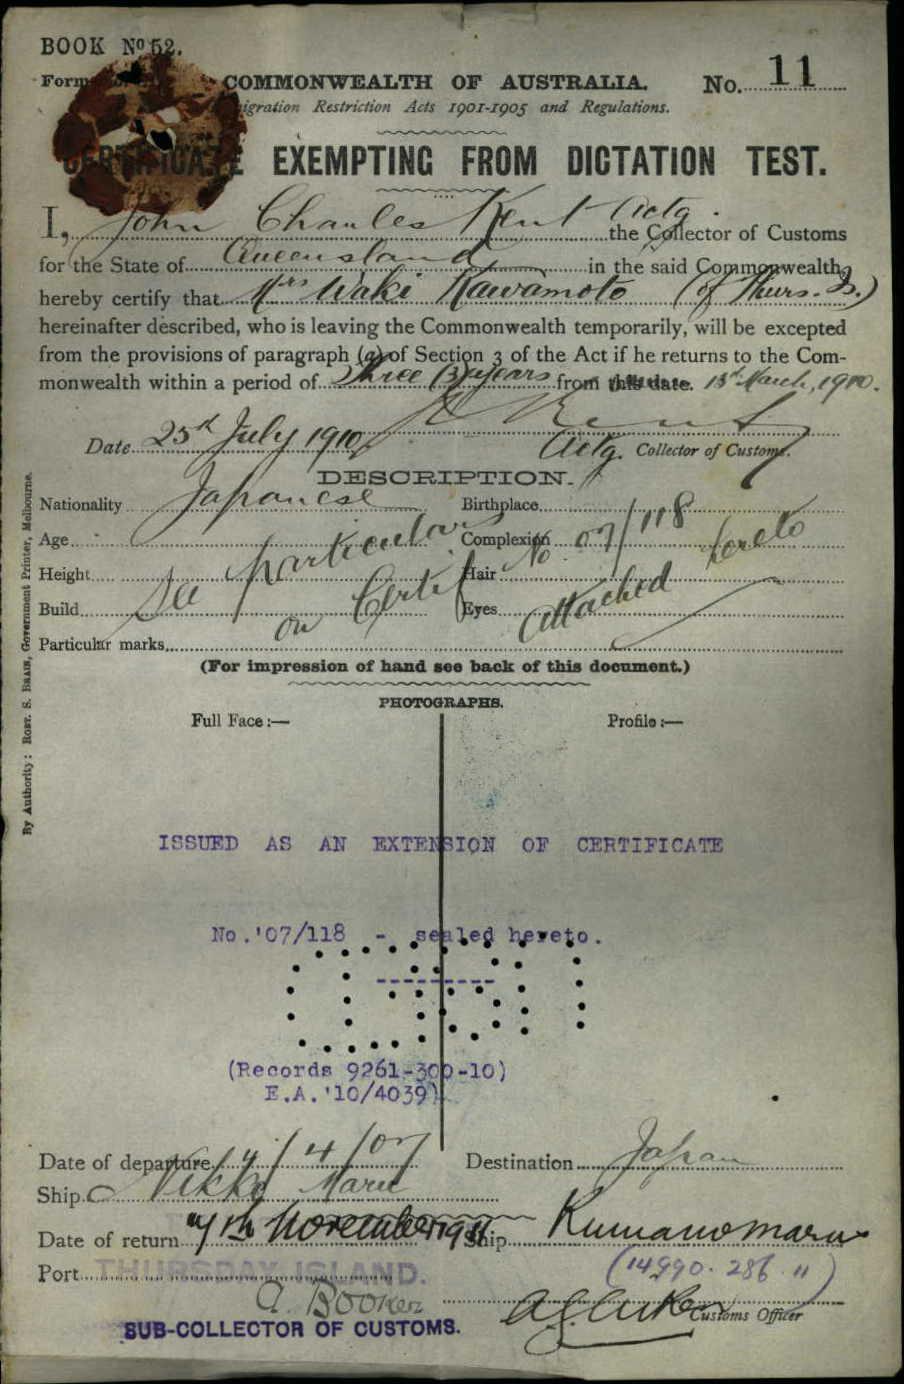 BOOK No 52.
Form
COMMONWEALTH OF AUSTRALIA.
No. 11
migration Restriction Acts 1901-1905 and Regulations.
CERTIFICATE EXEMPTING FROM DICTATION TEST.
I, John Charles Kent Actg. the Collector of Customs
for the State of Queensland in the said Commonwealth,
hereby certify that Mrs Waki Kawamoto (of Thurs. Is.)
hereinafter described, who is leaving the Commonwealth temporarily, will be excepted
from the provisions of paragraph (a) of Section 3 of the Act if he returns to the Com-
monwealth within a period of Three (3) years from this date. March, 1910.
Date 25th July 1910 Actg. Collector of Customs.
DESCRIPTION.
Nationality Japanese Birthplace
Age Complexion
Height Hair
Build Eyes
See particulars on Certif No. 07/118 attached hereto
Particular marks
(For impression of hand see back of this document.)
PHOTOGRAPHS.
Full Face :— Profile :—
ISSUED AS AN EXTENSION OF CERTIFICATE
No.'07/118 - sealed hereto.
(Records 9261-300-10)
E.A.'10/4039)
Date of departure 4/4/07 Destination Japan
Ship Nikko Maru
Date of return 7th November 1911 Ship Kumano maru
Port THURSDAY ISLAND. (14990. 286 11)
A. Booker
Customs Officer
SUB-COLLECTOR OF CUSTOMS.
By Authority: ROBT. S. BRAIN, Government Printer, Melbourne.